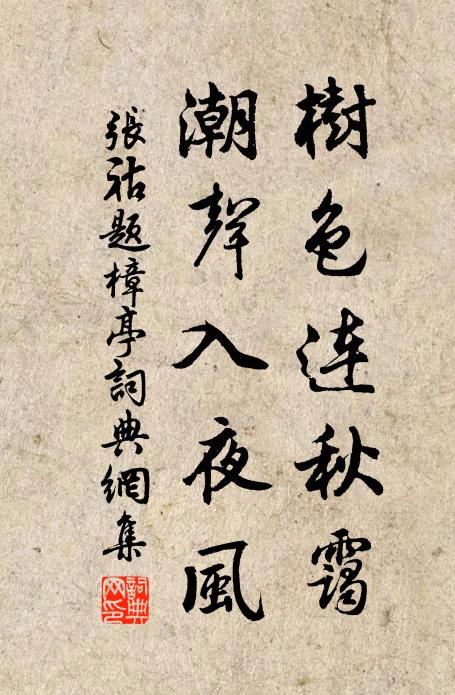 樹色連秋靄
潮聲入夜風
張祜題樟亭詞典網集
詞典網印